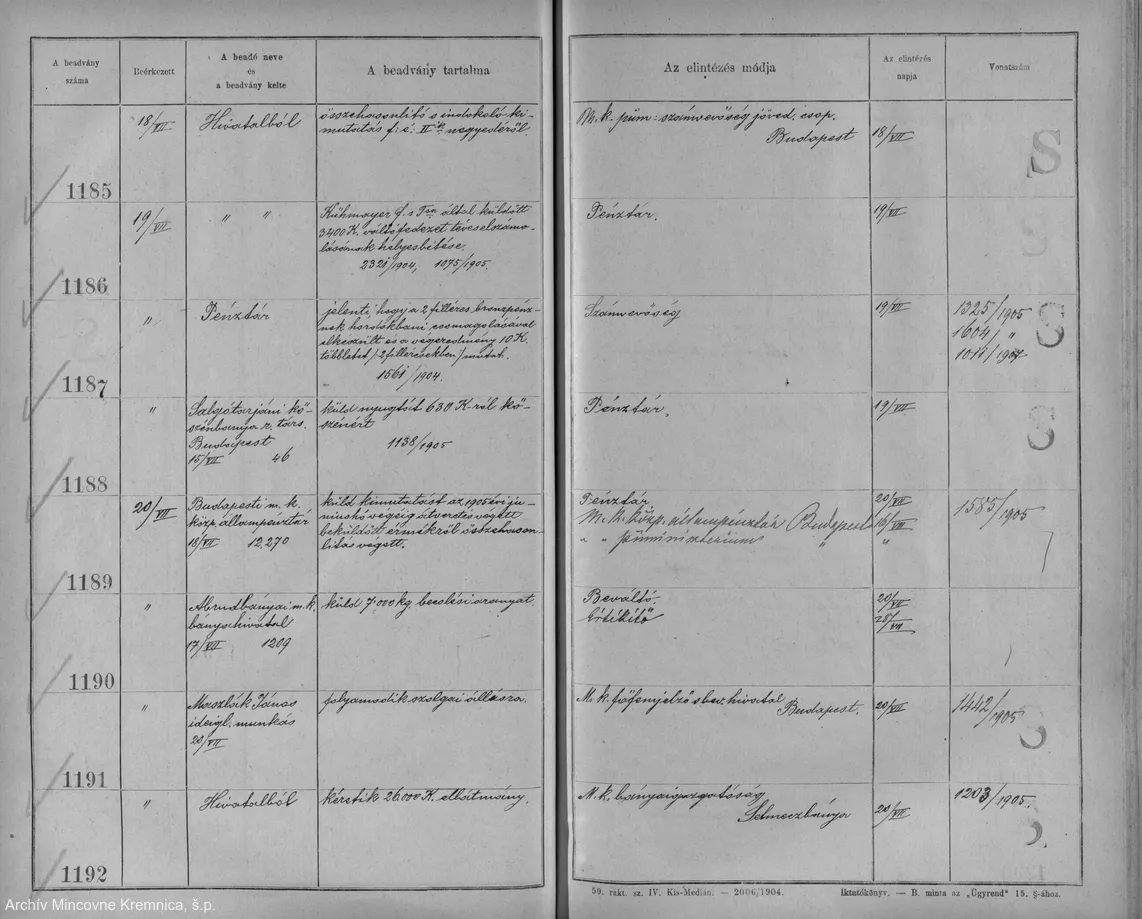 A beadvány
száma
Beérkezett
A beadó neve
és
a beadvány kelte
A beadvány tartalma
Az elintézés módja
Az elintézés
napja
Vonatszám
18/VII
Hivatalból
összehasonlító s indokoló ki-
mutatás f. é. II ik negyedéről
M. k. püm: számvevőség jöved. csop.
Budapest
18/VII
S
1185
19/VII
" "
által küldött
3400 K. váltófedezet téveselszámo-
lásának helyesbitése.
2321/1904, 1075/1905.
Pénztár.
19/VII
S
1186
"
Pénztár
jelenti, hogy a 2 filléres bronzpénz-
nek hordókbani csomagolásával
elkészült és a végeredmény 10 K.
többletet /2 fillérесekben/ mutat.
1561/1904.
Számvevőség
19/VII
1325/1905
1604/ "
S
1187
"
Salgótarjáni kő-
szénbánya r. társ.
Budapest
15/VII 46
küld nyugtát 630 K-ról kő-
szénért
1138/1905
Pénztár.
19/VII
S
1188
20/VII
Budapesti m. k.
közp. állampénztár
18/VII 12.270
küld kimutatást az 1905 évi ju-
niushó végéig átverés végett
beküldött érmékről összehason-
litás végett.
Pénztár
M. k. közp. állampénztár Budapest
" " püministerium "
20/VII
"
1585/1905
1189
"
Abrudbányai m. k.
bányahivatal
17/VII 1209
küld 7.000 kg becslési aranyat.
Beváltó.
Értékitő
20/VII
25/VII
1190
"
János
ideigl. munkás
20/VII
folyamodik szolgai állásra.
M. k. főfémjelző s bev. hivatal
Budapest.
20/VII
1442/1905
1191
"
Hivatalból
kéretik 26.000 K. ellátmány.
M. k. bányaigazgatóság
Selmeczbánya
20/VII
1203/1905.
1192
59. rakt. sz. IV. Kis-Medián. — 2006/1904.
Iktatókönyv. — B. minta az „Ügyrend" 15. §-ához.
Archív Mincovne Kremnica, š.p.